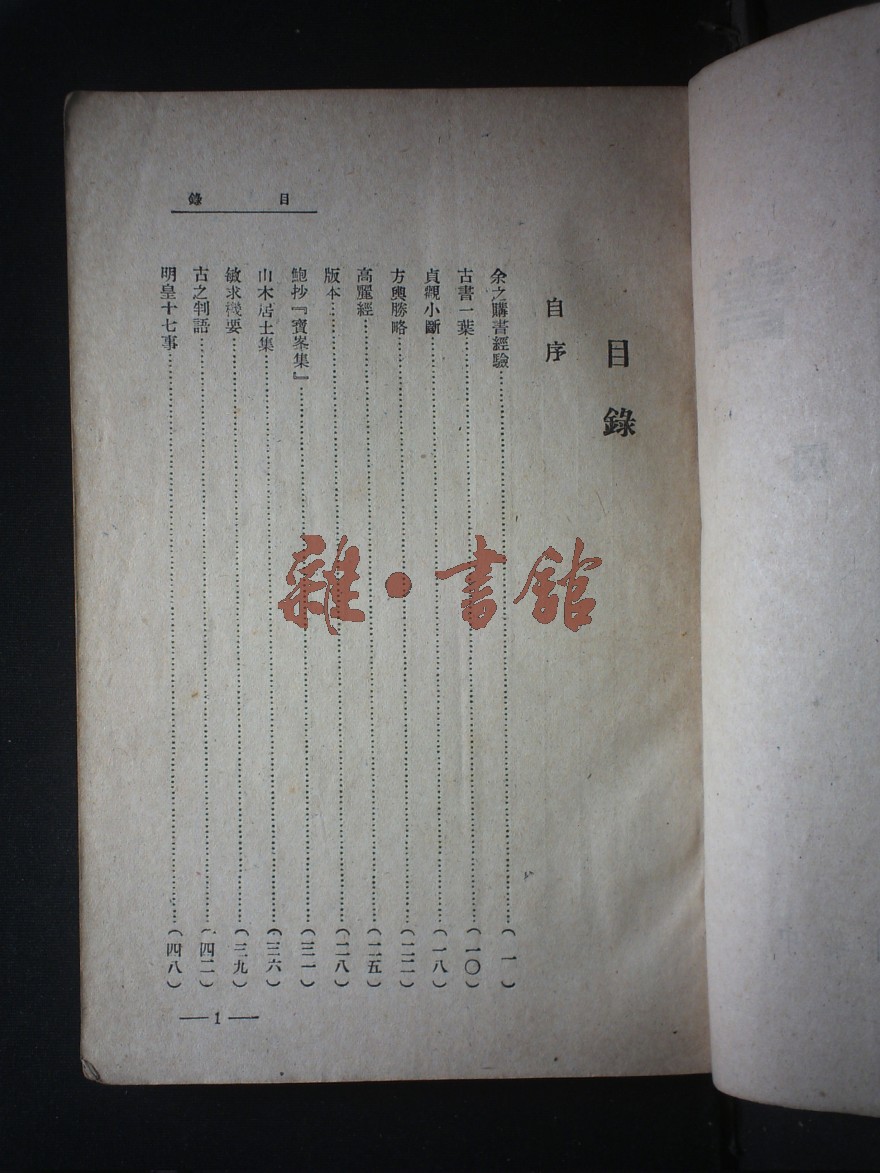 目錄
目錄
自序
余之購書經驗……（一）
古書一葉……（一〇）
貞觀小斷……（一八）
方輿勝略……（二二）
高麗經……（二五）
版本……（二八）
鮑抄『寶峯集』……（三一）
山木居士集……（三六）
敏求機要……（三九）
古之判語……（四二）
明皇十七事……（四八）
— 1 —
雜·書館